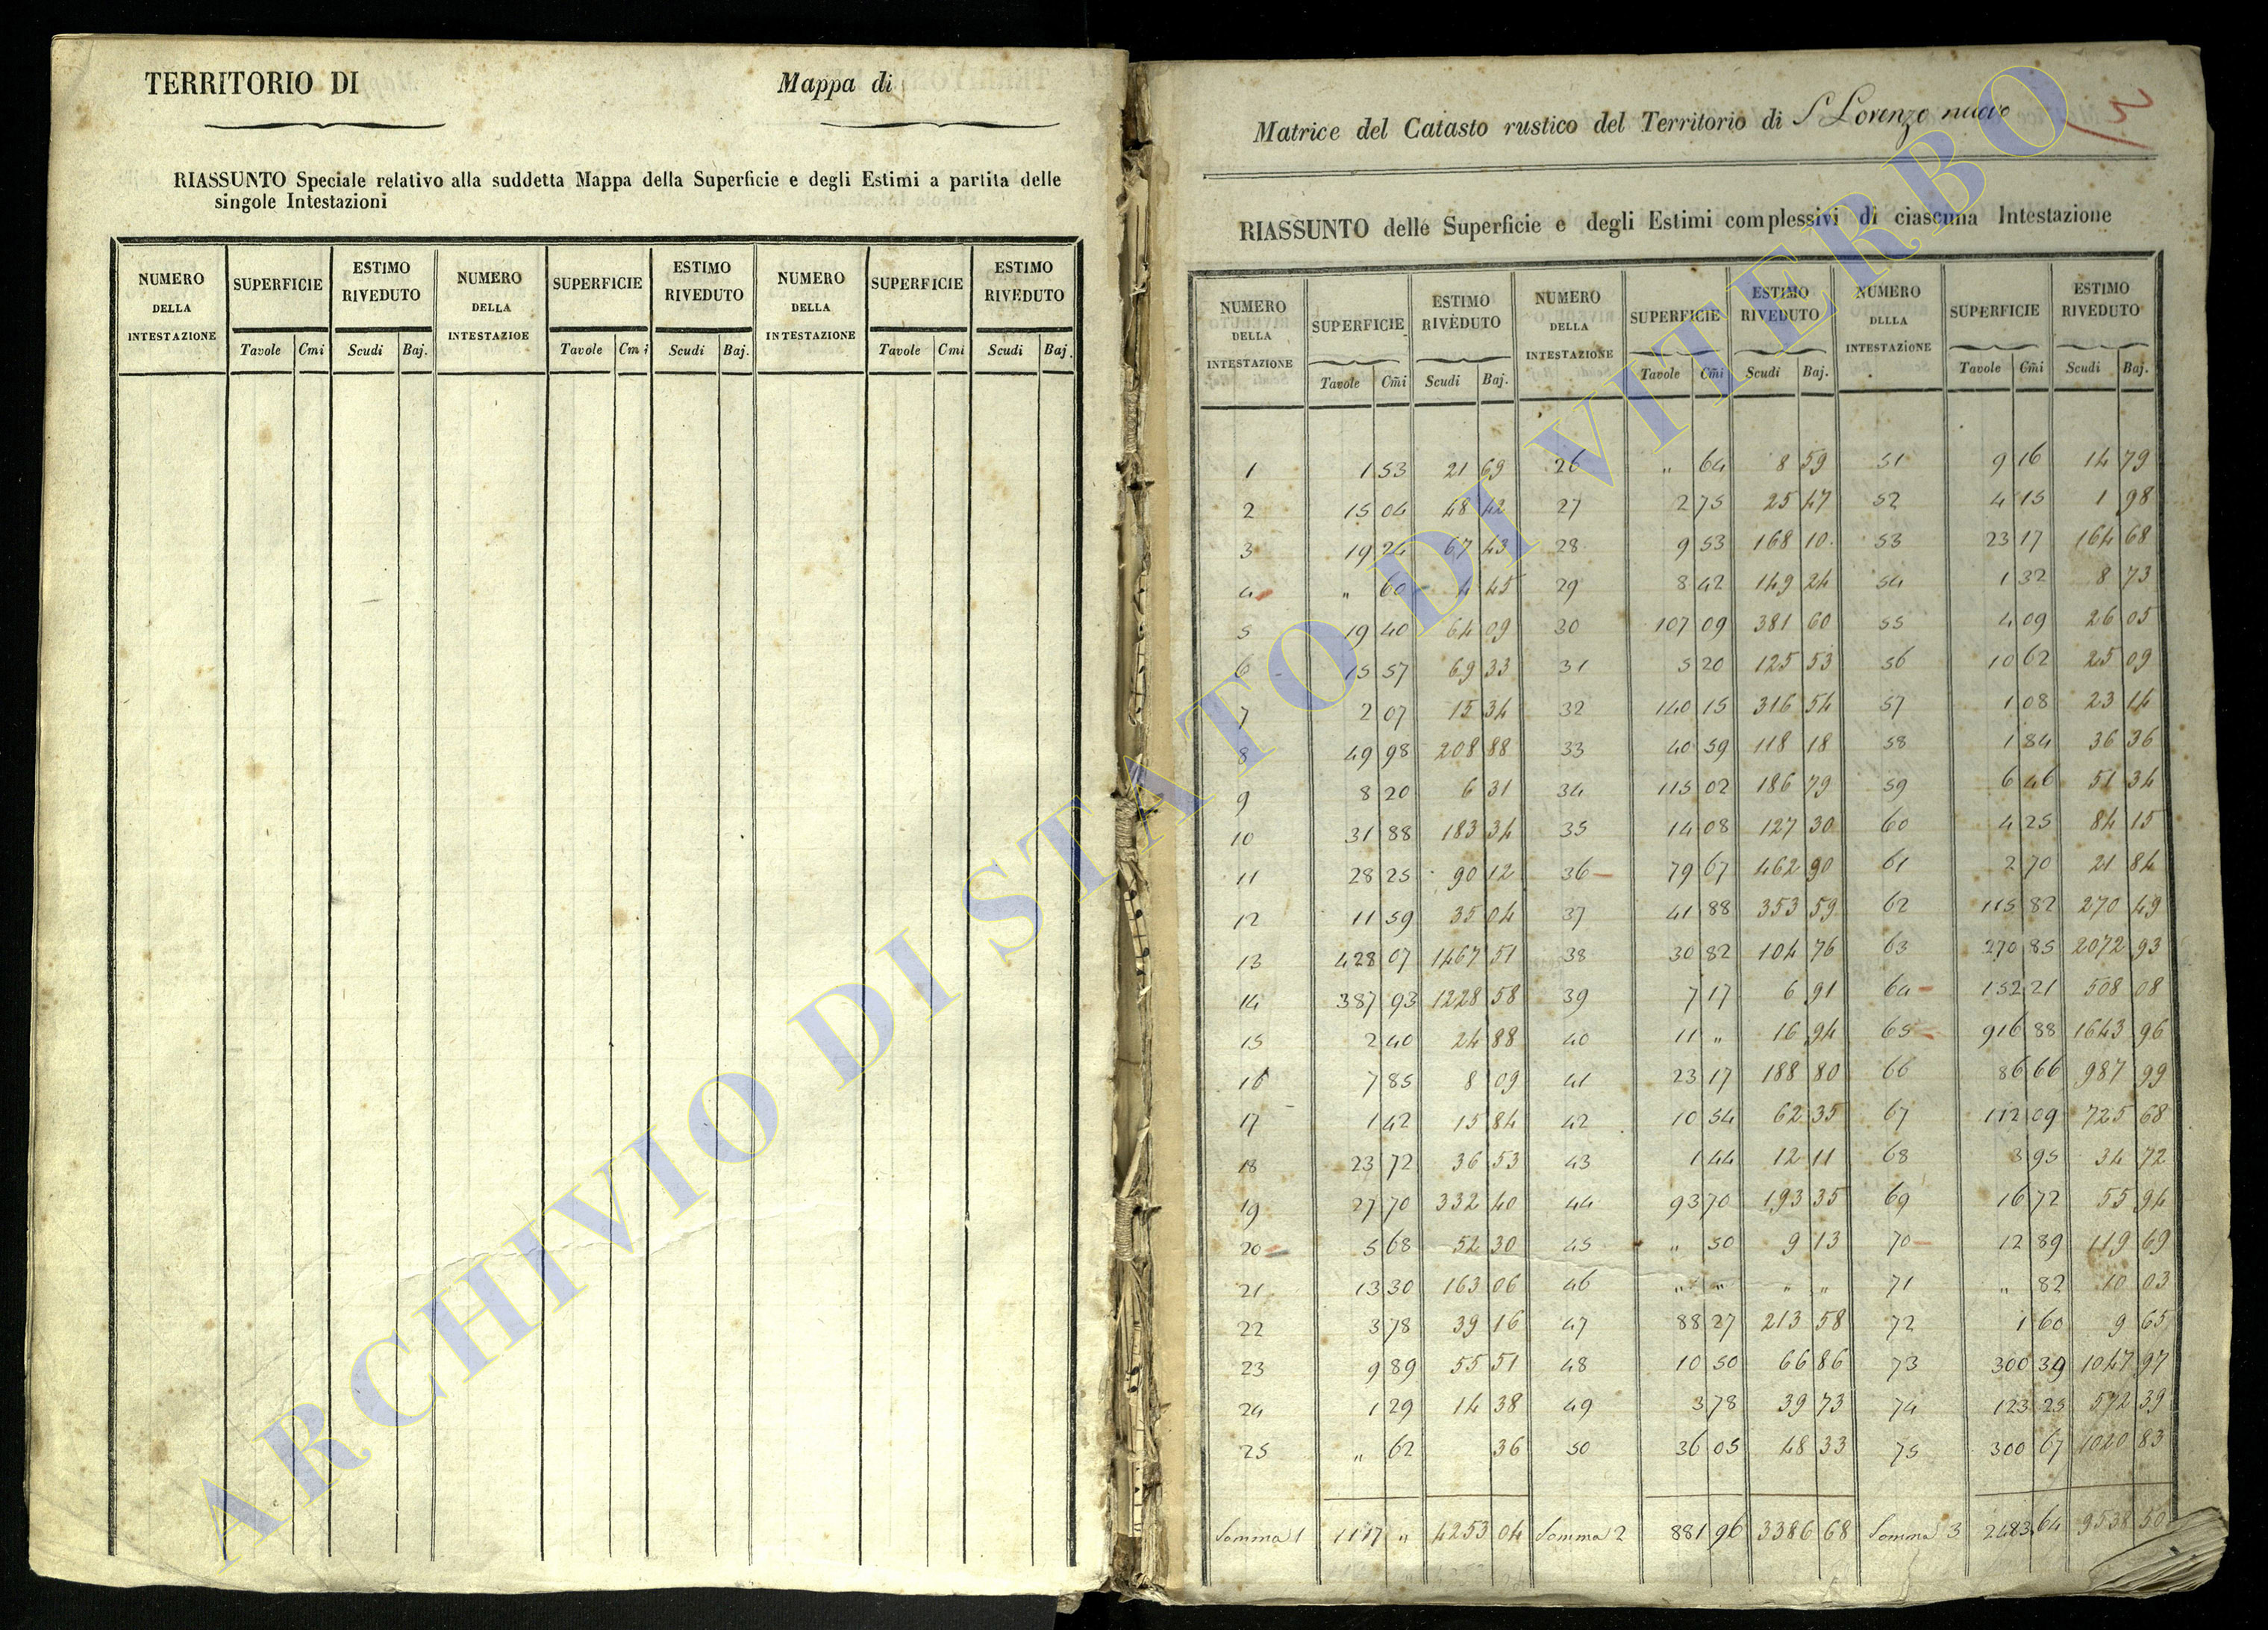 TERRITORIO DI Mappa di
RIASSUNTO Speciale relativo alla suddetta Mappa della Superficie e degli Estimi a partita delle
singole Intestazioni
NUMERO DELLA INTESTAZIONE SUPERFICIE ESTIMO RIVEDUTO NUMERO DELLA INTESTAZIOE SUPERFICIE ESTIMO RIVEDUTO NUMERO DELLA INTESTAZIONE SUPERFICIE ESTIMO RIVEDUTO
Tavole Cmi Scudi Baj. Tavole Cmi Scudi Baj. Tavole Cmi Scudi Baj.
Matrice del Catasto rustico del Territorio di S Lorenzo nuovo
3
RIASSUNTO delle Superficie e degli Estimi complessivi di ciascuna Intestazione
NUMERO DELLA INTESTAZIONE SUPERFICIE ESTIMO RIVEDUTO NUMERO DELLA INTESTAZIONE SUPERFICIE ESTIMO RIVEDUTO NUMERO DLLLA INTESTAZIONE SUPERFICIE ESTIMO RIVEDUTO
Tavole Cm̃i Scudi Baj. Tavole Cm̃i Scudi Baj. Tavole Cm̃i Scudi Baj.
1 1 53 21 69 26 " 64 8 59 51 9 16 14 79
2 15 04 48 42 27 2 75 25 47 52 4 15 1 98
3 19 24 67 43 28 9 53 168 10 53 23 17 164 68
4 " 60 4 45 29 8 42 149 24 54 1 32 8 73
5 19 40 64 09 30 107 09 381 60 55 4 09 26 05
6 15 57 69 33 31 5 20 125 53 56 10 62 25 09
7 2 07 15 34 32 140 15 316 54 57 1 08 23 14
8 49 98 208 88 33 40 59 118 18 58 1 84 36 36
9 8 20 6 31 34 115 02 186 79 59 6 46 51 34
10 31 88 183 34 35 14 08 127 30 60 4 25 84 15
11 28 25 90 12 36 79 67 462 90 61 2 70 21 84
12 11 59 35 04 37 41 88 353 59 62 115 82 270 49
13 428 07 1467 51 38 30 82 104 76 63 270 85 2072 93
14 387 93 1228 58 39 7 17 6 91 64 152 21 508 08
15 2 40 24 88 40 11 " 16 94 65 916 88 1643 96
16 7 85 8 09 41 23 17 188 80 66 86 66 987 99
17 1 42 15 84 42 10 54 62 35 67 112 09 725 68
18 23 72 36 53 43 1 44 12 11 68 3 95 34 72
19 27 70 332 40 44 93 70 193 35 69 16 72 55 94
20 5 68 52 30 45 " 50 9 13 70 12 89 119 69
21 13 30 163 06 46 " " " " 71 " 82 10 03
22 3 78 39 16 47 88 27 213 58 72 1 60 9 65
23 9 89 55 51 48 10 50 66 86 73 300 39 1047 97
24 1 29 14 38 49 3 78 39 73 74 123 25 592 39
25 " 62 36 50 36 05 48 33 75 300 67 1020 83
Somma 1 1117 " 4253 04 Somma 2 881 96 3386 68 Somma 3 2483 64 9538 50
ARCHIVIO DI STATO DI VITERBO